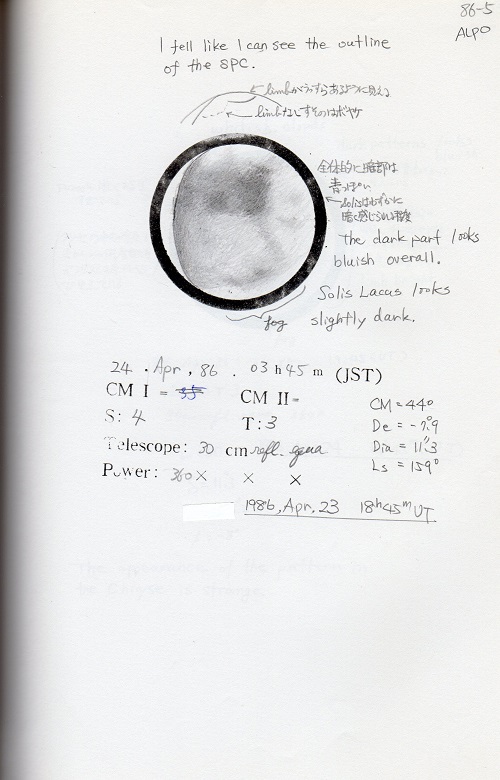 86-5
ALPO
I fell like I can see the outline
of the SPC.
← limbがうっすらあるように見える
← limbなしすそのはボヤケ
全体的に暗部は
青っぽい
← Solisはわずかに
暗く感じられる程度
the dark part looks
bluish overall.
Solis Lacus looks
slightly dark.
fog
24 . Apr , 86 . 03 h 45 m (JST)
CM I = 35 CM II=
CM = 44°
S: 4 T: 3
De = -7.°9
Telescope: 30 cm refl.
Dia = 11."3
Power: 360 × × ×
Ls = 159°
1986, Apr, 23 18h45m UT